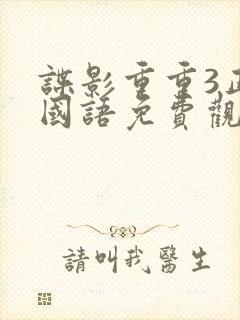 諜影重重3正
國語免費觀
請叫我醫生